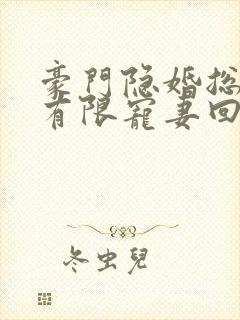 豪門隐婚总
有限寵妻回
冬虫兒